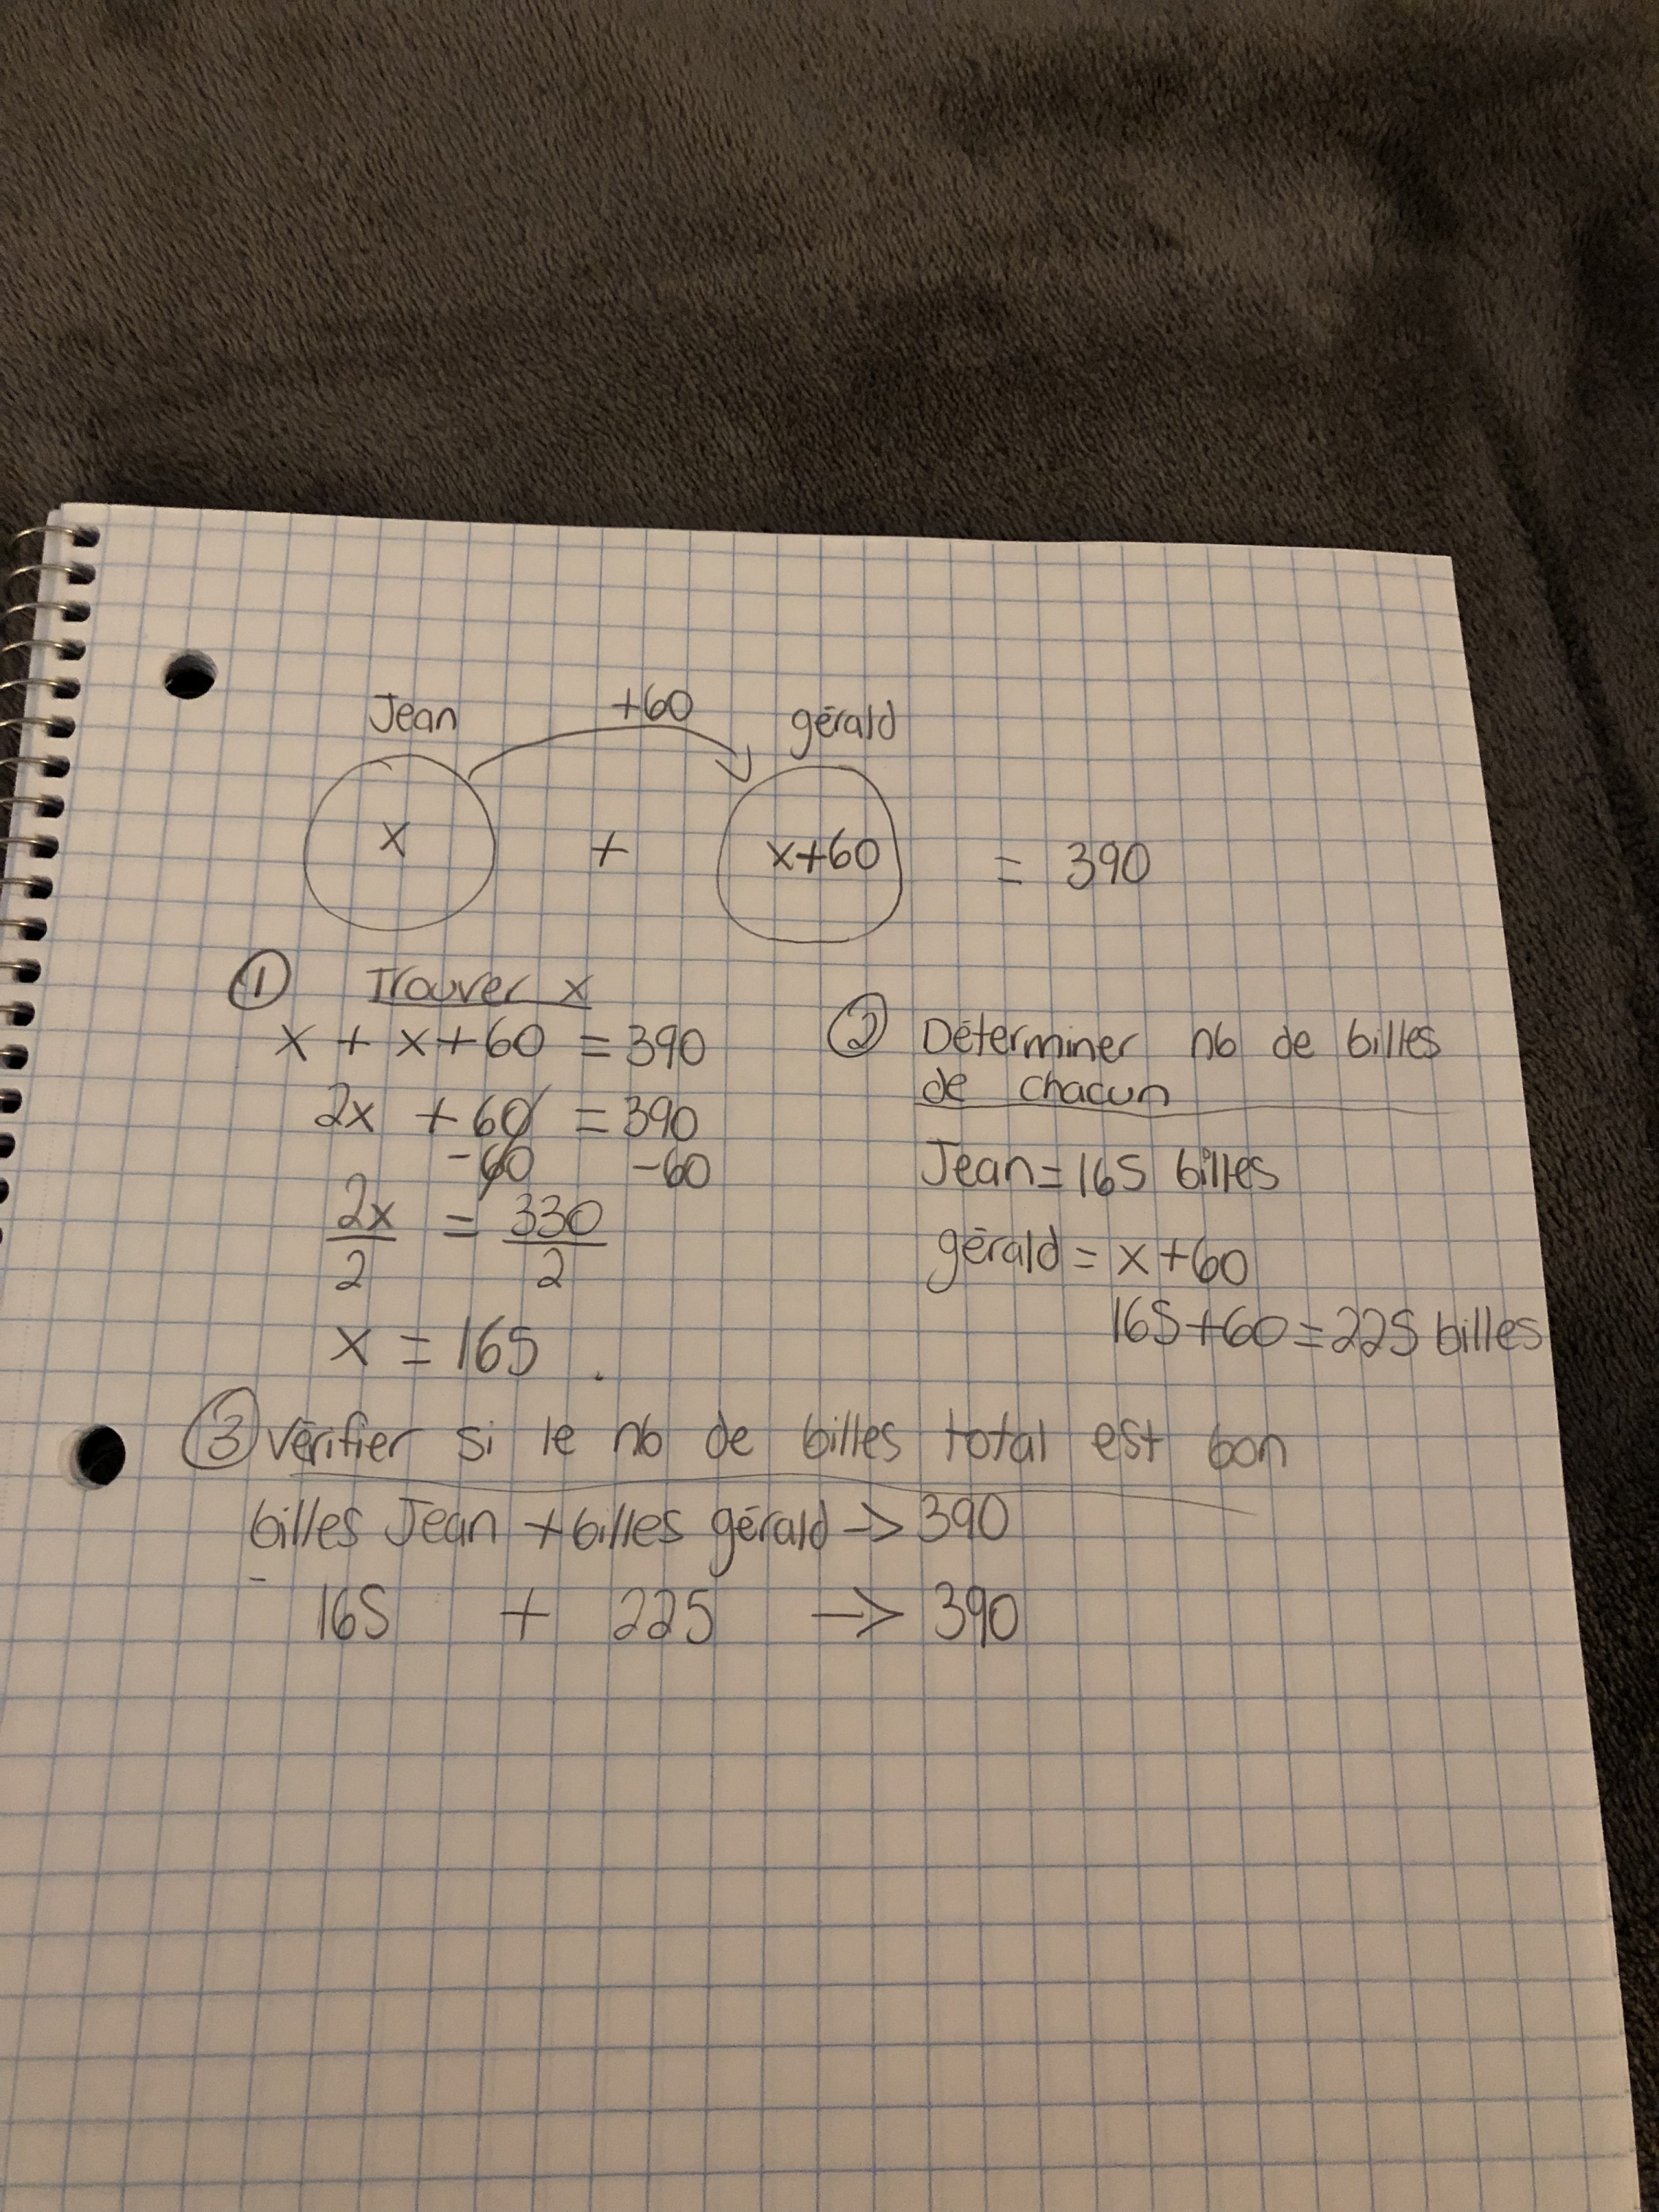 Jean +60 gérald
x + x+60 = 390
① Trouver x
x + x+60 = 390
2x +60 = 390
-60 -60
2x = 330
2 2
x = 165
② Déterminer nb de billes
de chacun
Jean = 165 billes
gérald = x+60
165+60=225 billes
③ Vérifier si le nb de billes total est bon
billes Jean + billes gérald -> 390
165 + 225 -> 390